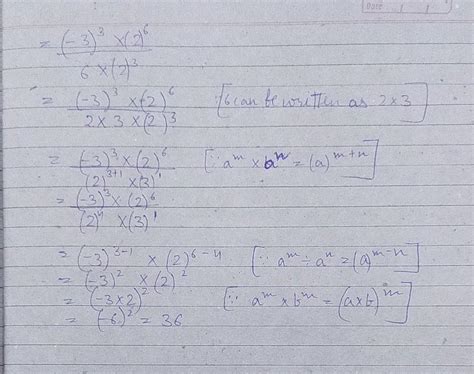 Date
= (-3)³ × (2)⁶ / 6 × (2)³
= (-3)³ × (2)⁶ / 2 × 3 × (2)³ [6 can be written as 2×3]
= (-3)³ × (2)⁶ / (2)³⁺¹ × (3)¹ [∵ aᵐ × aⁿ = (a)ᵐ⁺ⁿ]
= (-3)³ × (2)⁶ / (2)⁴ × (3)¹
= (-3)³⁻¹ × (2)⁶⁻⁴ [∵ aᵐ ÷ aⁿ = (a)ᵐ⁻ⁿ]
= (-3)² × (2)²
= (-3×2)² [∵ aᵐ × bᵐ = (a×b)ᵐ]
= (-6)² = 36